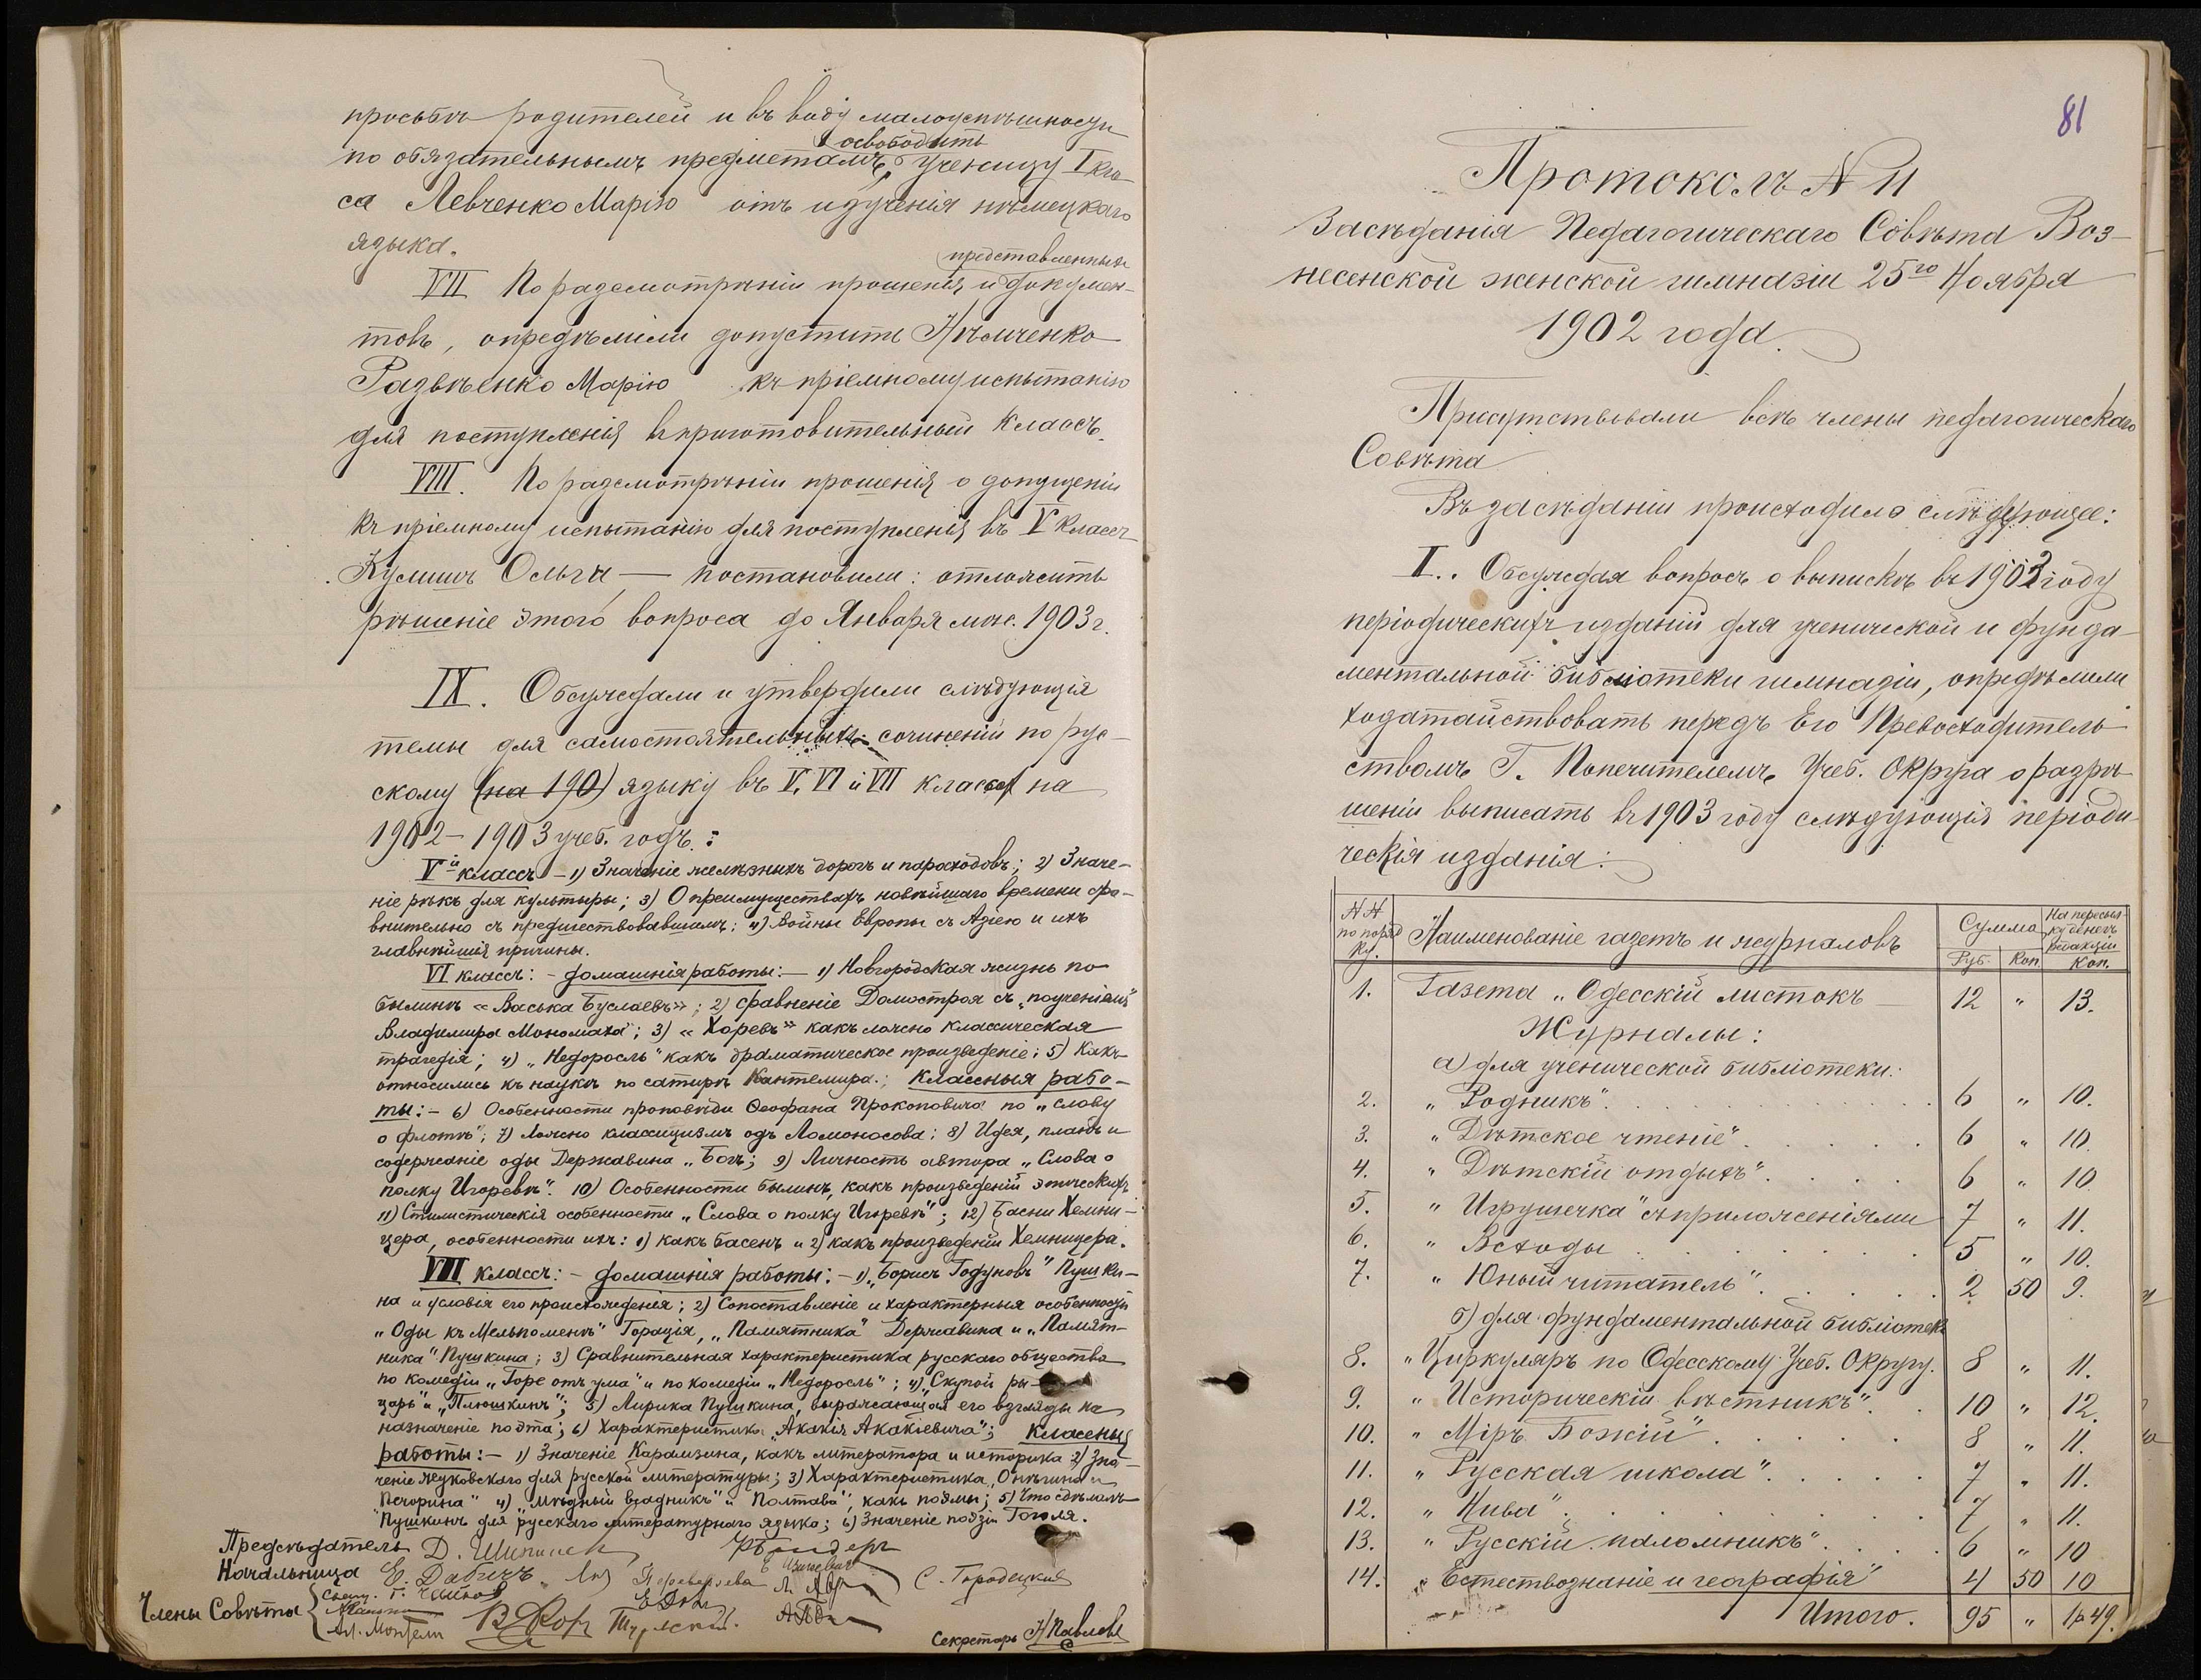 просьбѣ родителей и въ виду малоуспѣшности
освободить
по обязательнымъ предметамъ, ученицу I клас-
са Левченко Марію отъ изученія нѣмецкаго
языка.
представленныхъ
VII По разсмотрѣніи прошенія и докумен-
товъ, опредѣлили допустить
Марію къ пріемному испытанію
для поступленія въ приготовительный классъ.
VIII. По разсмотрѣніи прошенія о допущеніи
къ пріемному испытанію для поступленія въ V классъ
Кулишъ Ольги — постановили: отложить
рѣшеніе этого вопроса до Января мѣс. 1903 г.
IX. Обсуждали и утвердили слѣдующія
темы для самостоятельныхъ сочиненій по рус-
скому (на 190) языку въ V, VI и VII классах на
1902–1903 учеб. годъ:
V й классъ – 1) Значеніе желѣзныхъ дорогъ и пароходовъ; 2) Значе-
ніе рѣкъ для культуры; 3) О преимуществахъ новѣйшаго времени сра-
внительно съ предшествовавшимъ; 4) Войны Европы съ Азіею и ихъ
главнѣйшія причины.
VI классъ: – домашнія работы: – 1) Новгородская жизнь по
былинѣ «Васька Буслаевъ»; 2) сравненіе Домостроя съ „поученіемъ
Владимира Мономаха"; 3) «Хоревъ» какъ ложно классическая
трагедія; 4) „Недоросль" какъ драматическое произведеніе; 5) Какъ
относились къ наукѣ по сатирѣ Кантемира.; Классныя рабо-
ты: – 6) Особенности проповѣди Ѳеофана Прокоповича по „слову
о флотѣ"; 7) Ложно классицизмъ одъ Ломоносова; 8) Идея, планъ и
содержаніе оды Державина „Богъ; 9) Личность автора „Слова о
полку Игоревѣ". 10) Особенности былинъ, какъ произведеній эпическихъ
11) Стилистическія особенности „Слова о полку Игоревѣ"; 12) Басни Хемни-
цера, особенности ихъ: 1) какъ басенъ и 2) какъ произведеній Хемницера.
VII классъ: – домашнія работы: – 1) „Борисъ Годуновъ" Пушки-
на и условія его происхожденія; 2) Сопоставленіе и характерныя особенности
„Оды къ Мельпоменѣ" Горація, „Памятника" Державина и „Памят-
ника" Пушкина; 3) Сравнительная характеристика русскаго общества
по комедіи „Горе отъ ума" и по комедіи „Недоросль"; 4) „Скупой ры-
царь" и „Плюшкинъ"; 5) Лирика Пушкина, выражающая его взгляды на
назначеніе поэта; 6) Характеристика „Акакія Акакіевича"; классныя
работы: – 1) Значеніе Карамзина, какъ литератора и историка 2) Зна-
ченіе Жуковскаго для русской литературы; 3) Характеристика „Онѣгина и
Печорина" 4) „Мѣдный всадникъ" и "Полтава", какъ поэмы; 5) Что сдѣлалъ
Пушкинъ для русскаго литературнаго языка; 6) Значеніе поэзіи Гоголя.
Предсѣдатель Д.
Начальница Е. Дабичъ
С. Городецкій
Члены Совѣта
Секретарь Н Павловъ
81
Протоколъ № 11
Засѣданія Педагогическаго Совѣта Воз-
несенской женской гимназіи 25го Ноября
1902 года.
Присутствовали всѣ члены педагогическаго
Совѣта
Въ засѣданіи происходило слѣдующее:
I.. Обсуждая вопросъ о выпискѣ въ 1903 году
періодическихъ изданій для ученической и фунда-
ментальной библіотеки гимназіи, опредѣлили
ходатайствовать передъ Его Превосходитель-
ствомъ Г. Попечителемъ Учеб. Округа о разрѣ-
шеніи выписать въ 1903 году слѣдующія періоди-
ческія изданія:
№№ по порядку. Наименованіе газетъ и журналовъ Сумма Руб. Коп. На пересылку денегъ редакціи Коп.
1. Газета „Одесскій листокъ 12 " 13.
Журналы:
а) для ученической библіотеки:
2. „Родникъ". 6 " 10.
3. „Дѣтское чтеніе". 6 " 10.
4. „Дѣтскій отдыхъ". 6 " 10
5. „Игрушечка" съ приложеніями 7 " 11.
6. „Всходы 5 " 10.
7. „Юный читатель". 2 50 9.
б) для фундаментальной библіотеки
8. „Циркуляръ по Одесскому Учеб. Округу. 8 " 11.
9. „Историческій вѣстникъ". 10 " 12.
10. „Міръ Божій". 8 " 11.
11. „Русская школа". 7 " 11.
12. „Нива". 7 " 11.
13. „Русскій паломникъ". 6 " 10
14. Естествознаніе и географія" 4 50 10
Итого. 95 " 1р 49.